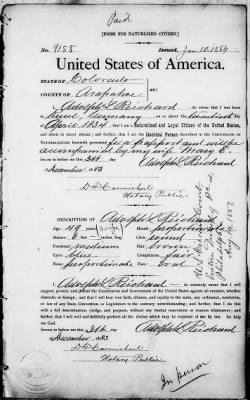 Paid
[FORM FOR NATURALIZED CITIZEN.]
No. 9158 Issued, Jan. 10. 1884
United States of America.
STATE OF Colorado
COUNTY OF Arapahoe ss:
I, Adolph L. Reichard, do swear that I was born
Germany on or about the
April 1834; that I am a Naturalized and Loyal Citizen of the United States,
and about to travel abroad; and further, that I am the Identical Person described in the Certificate of
Naturalization herewith presented for a Passport and will be
accompanied by my wife Mary E.
Sworn to before me this
December 1883
Adolph L. Reichard
D. F. Carmichael
Notary Public
DESCRIPTION OF Adolph L. Reichard
Age: 49 years
Mouth: proportionate
Stature:
Chin: round
Forehead: medium
Hair: brown
Eyes: blue
Complexion: fair
Nose: proportionate
Face: oval
I, Adolph L. Reichard, do solemnly swear that I will
support, protect, and defend the Constitution and Government of the United States against all enemies, whether
domestic or foreign; and that I will bear true faith, allegiance, and loyalty to the same, any ordinance, resolution,
or law of any State, Convention, or Legislature to the contrary notwithstanding; and further, that I do this
with a full determination, pledge, and purpose, without any mental reservation or evasion whatsoever; and
further, that I will well and faithfully perform all the duties which may be required of me by law. So help me
God.
Sworn to before me this
December 1883
Adolph L. Reichard
D. F. Carmichael
Notary Public
In person